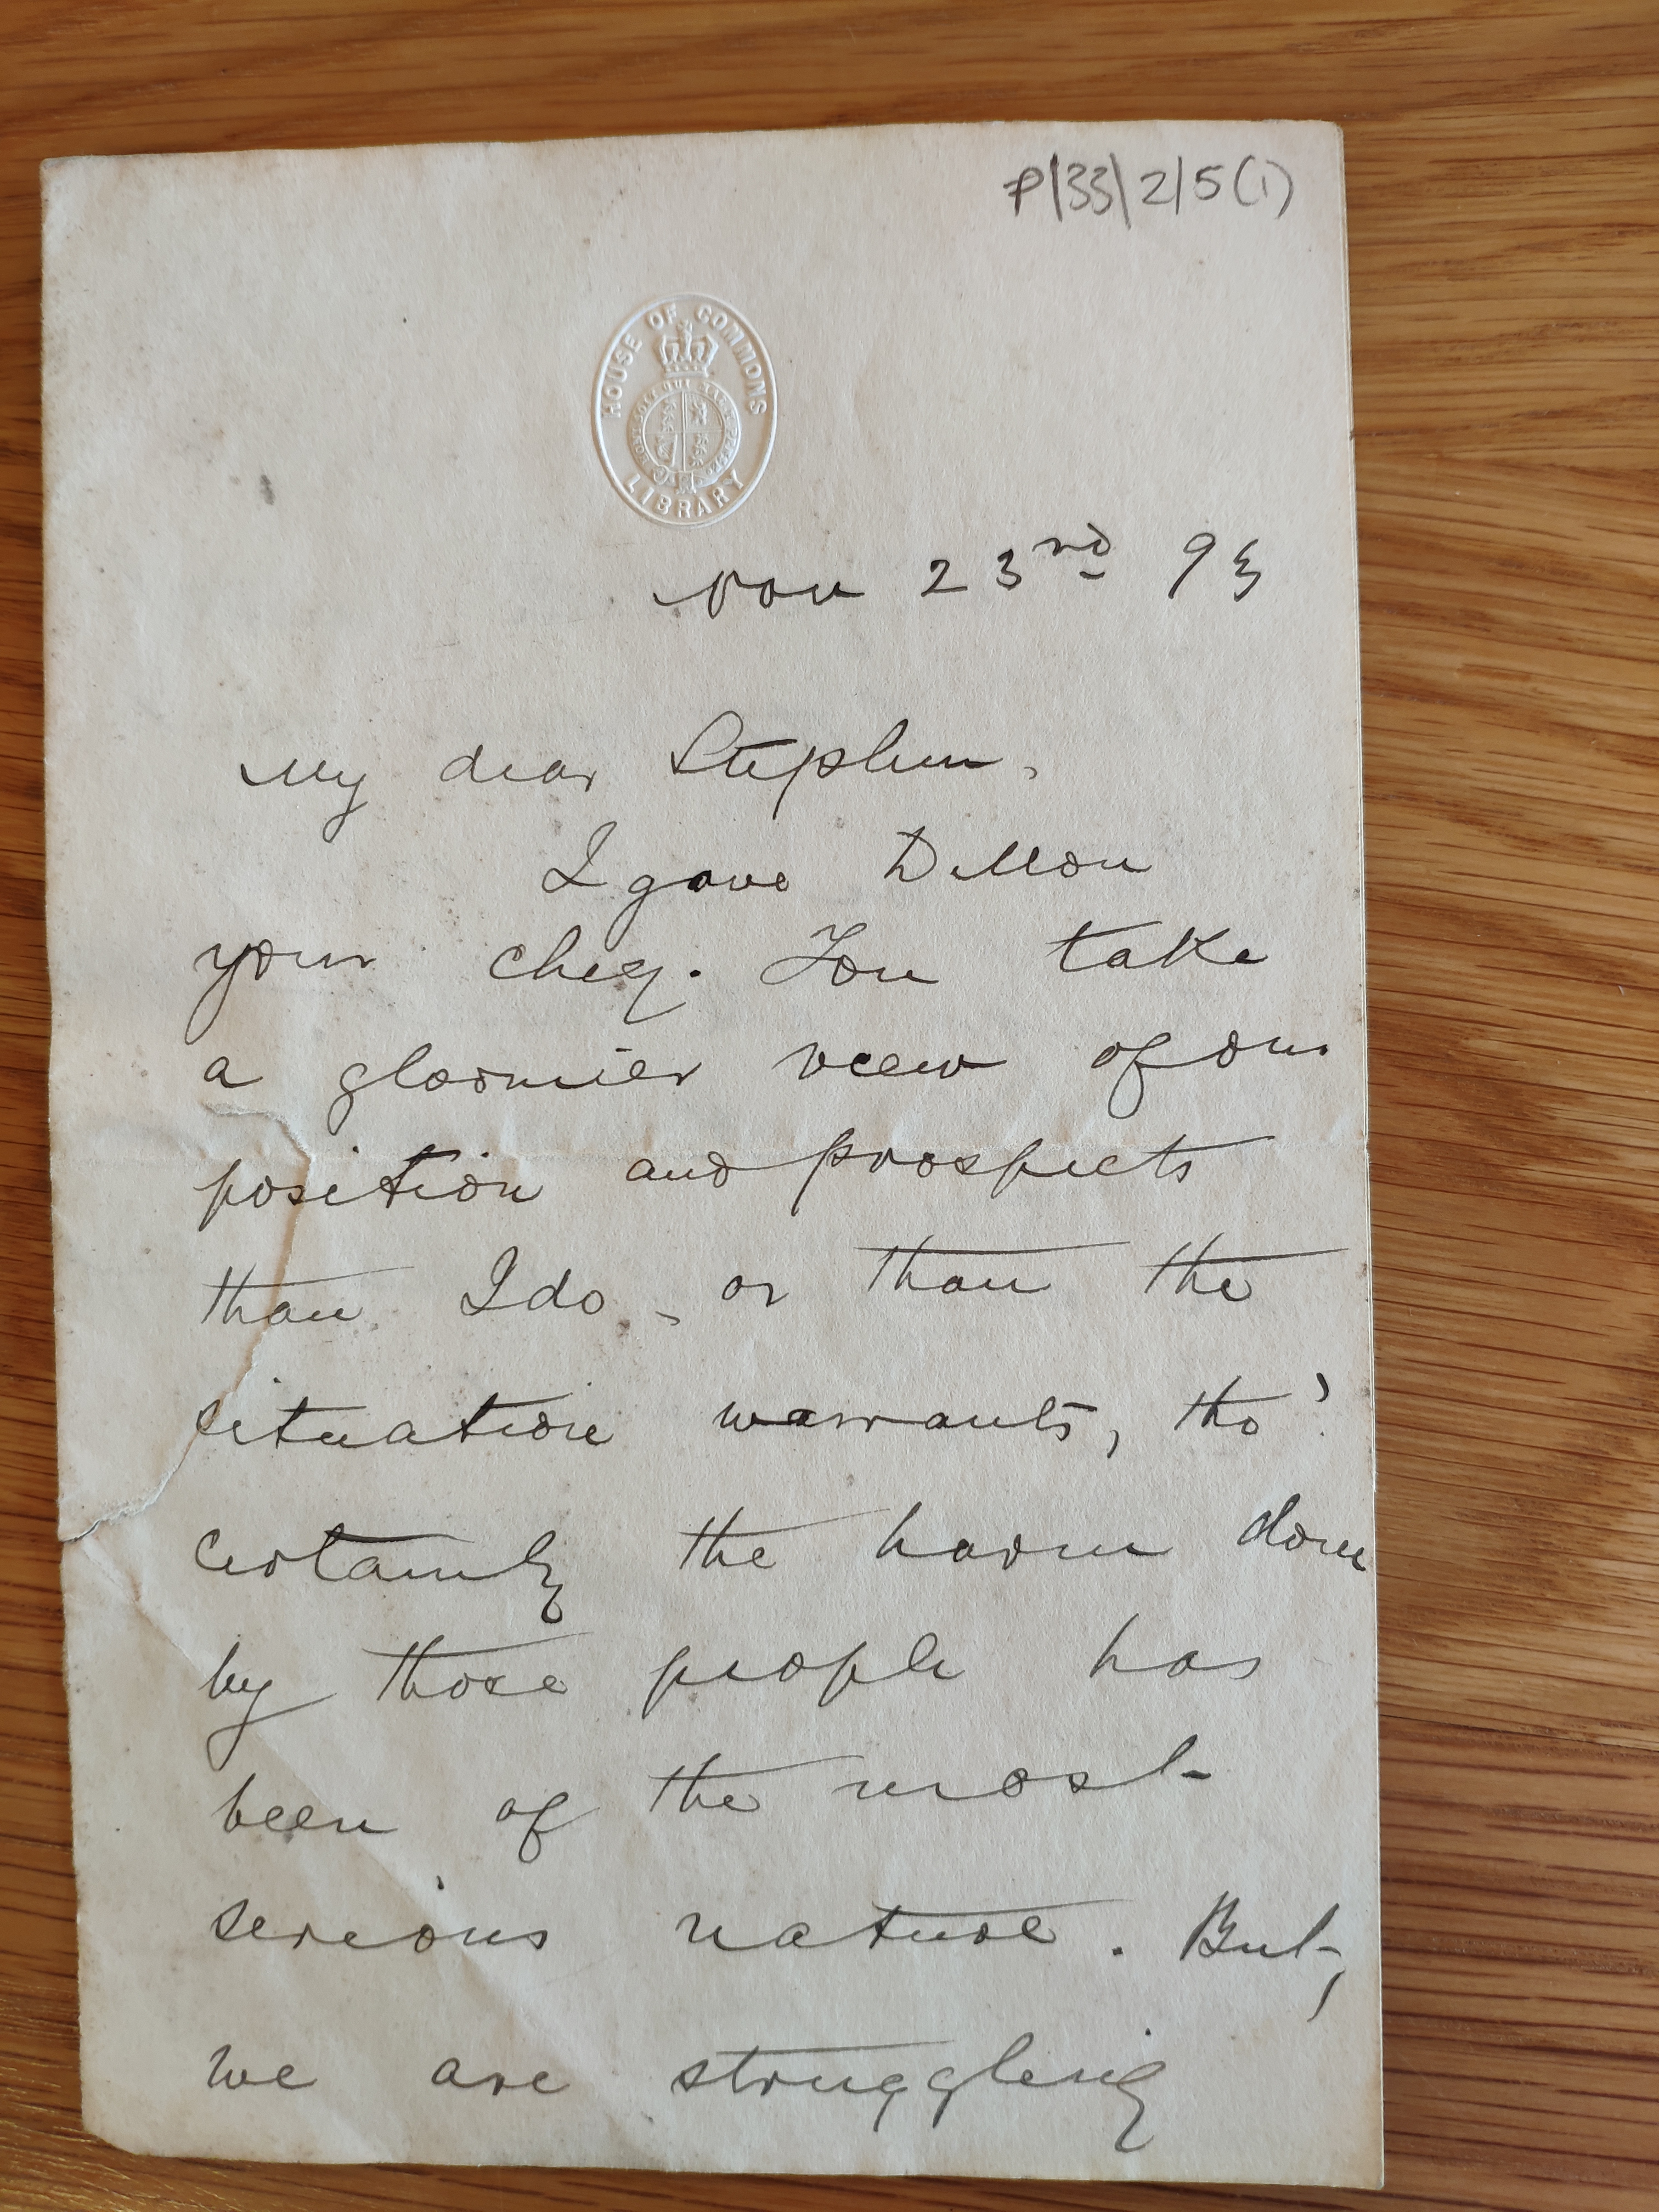 P/33/2/5(1)
HOUSE OF COMMONS
LIBRARY
Nov 23rd 93
My dear Stephen,
I gave Dillon
your cheq. You take
a gloomier view of our
position and prospects
than I do, or than the
situation warrants, tho'
certainly the harm done
by those people has
been of the most
serious nature. But,
we are struggling